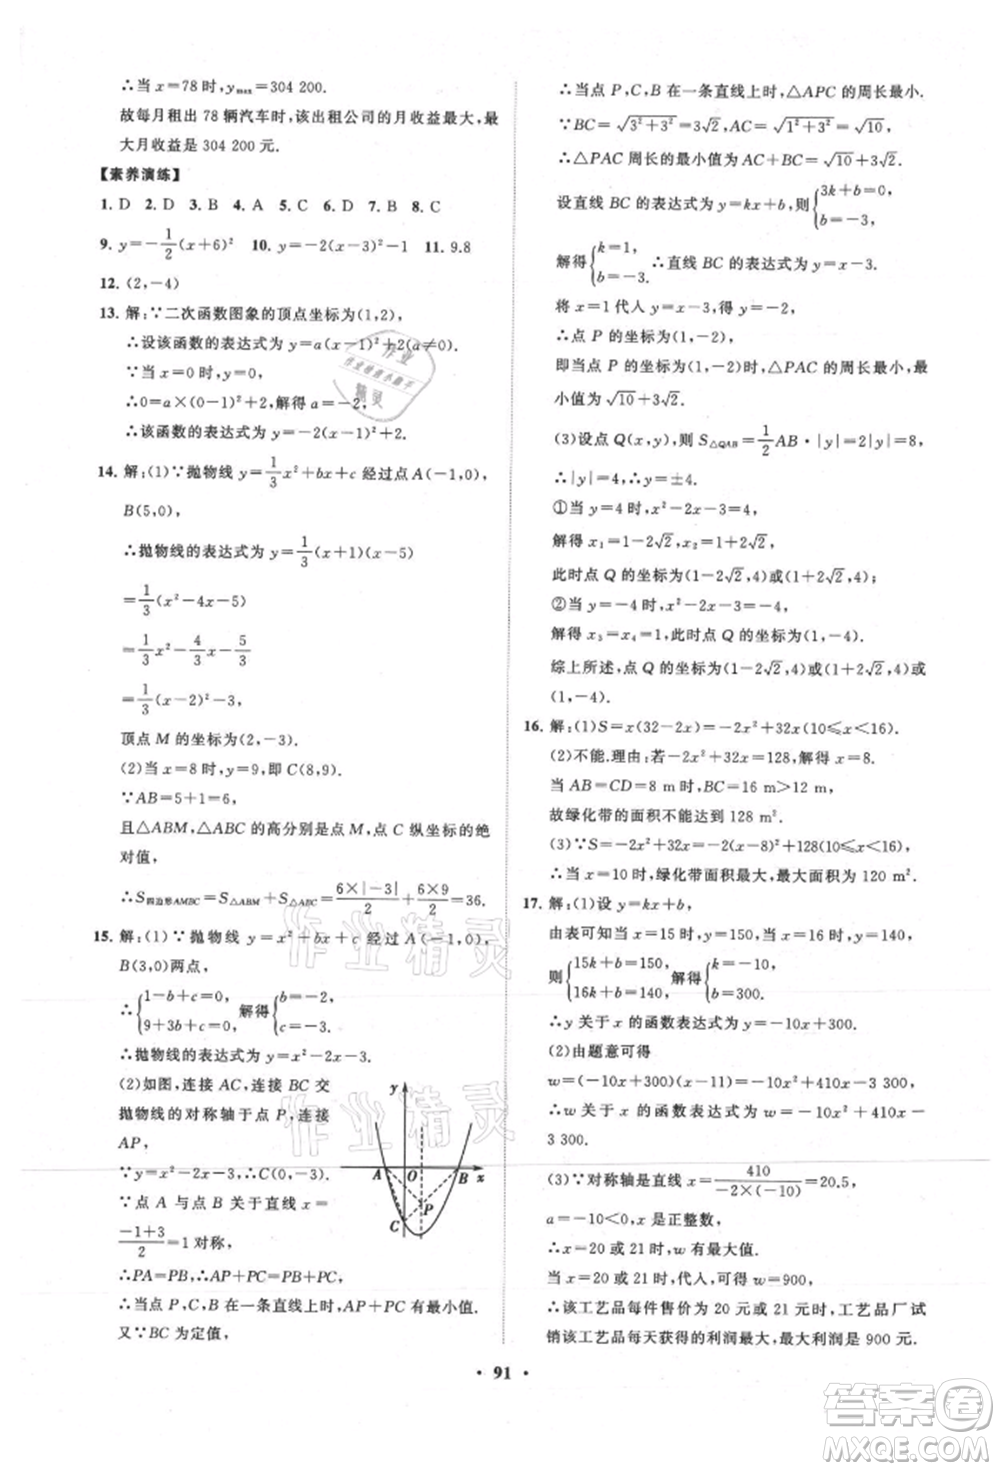 ∴当 x=78 时,y_max=304 200.
故每月租出 78 辆汽车时,该出租公司的月收益最大,最
大月收益是 304 200 元.
【素养演练】
1. D 2. D 3. B 4. A 5. C 6. D 7. B 8. C
9. y=-1/2(x+6)² 10. y=-2(x-3)²-1 11. 9.8
12. (2,-4)
13. 解:∵二次函数图象的顶点坐标为(1,2),
∴设该函数的表达式为 y=a(x-1)²+2(a≠0).
∵当 x=0 时,y=0,
∴0=a×(0-1)²+2,解得 a=-2,
∴该函数的表达式为 y=-2(x-1)²+2.
14. 解:(1)∵抛物线 y=1/3x²+bx+c 经过点 A(-1,0),
B(5,0),
∴抛物线的表达式为 y=1/3(x+1)(x-5)
=1/3(x²-4x-5)
=1/3x²-4/3x-5/3
=1/3(x-2)²-3,
顶点 M 的坐标为(2,-3).
(2)当 x=8 时,y=9,即 C(8,9).
∵AB=5+1=6,
且△ABM,△ABC 的高分别是点 M,点 C 纵坐标的绝
对值,
∴S四边形AMBC=S△ABM+S△ABC=6×|-3|/2+6×9/2=36.
15. 解:(1)∵抛物线 y=x²+bx+c 经过 A(-1,0),
B(3,0)两点,
∴{1-b+c=0, 9+3b+c=0, 解得{b=-2, c=-3.
∴抛物线的表达式为 y=x²-2x-3.
(2)如图,连接 AC,连接 BC 交
抛物线的对称轴于点 P,连接
AP,
∵y=x²-2x-3,∴C(0,-3).
∵点 A 与点 B 关于直线 x=
(-1+3)/2=1 对称,
∴PA=PB,∴AP+PC=PB+PC,
∴当点 P,C,B 在一条直线上时,AP+PC 有最小值.
又∵BC 为定值,
y
A O B x
P
C
∴当点 P,C,B 在一条直线上时,△APC 的周长最小.
∵BC=√(3²+3²)=3√2,AC=√(1²+3²)=√10,
∴△PAC 周长的最小值为 AC+BC=√10+3√2.
设直线 BC 的表达式为 y=kx+b,则{3k+b=0, b=-3.
解得{k=1, b=-3. ∴直线 BC 的表达式为 y=x-3.
将 x=1 代入 y=x-3,得 y=-2,
∴点 P 的坐标为(1,-2),
即当点 P 的坐标为(1,-2)时,△PAC 的周长最小,最
小值为 √10+3√2.
(3)设点 Q(x,y),则 S△QAB=1/2AB·|y|=2|y|=8,
∴|y|=4,∴y=±4.
①当 y=4 时,x²-2x-3=4,
解得 x₁=1-2√2,x₂=1+2√2,
此时点 Q 的坐标为(1-2√2,4)或(1+2√2,4);
②当 y=-4 时,x²-2x-3=-4,
解得 x₃=x₄=1,此时点 Q 的坐标为(1,-4).
综上所述,点 Q 的坐标为(1-2√2,4)或(1+2√2,4)或
(1,-4).
16. 解:(1)S=x(32-2x)=-2x²+32x(10≤x<16).
(2)不能.理由:若-2x²+32x=128,解得 x=8.
当 AB=CD=8 m 时,BC=16 m>12 m,
故绿化带的面积不能达到 128 m².
(3)∵S=-2x²+32x=-2(x-8)²+128(10≤x<16),
∴当 x=10 时,绿化带面积最大,最大面积为 120 m².
17. 解:(1)设 y=kx+b,
由表可知,当 x=15 时,y=150,当 x=16 时,y=140,
则{15k+b=150, 16k+b=140, 解得{k=-10, b=300.
∴y 关于 x 的函数表达式为 y=-10x+300.
(2)由题意可得
w=(-10x+300)(x-11)=-10x²+410x-3 300,
∴w 关于 x 的函数表达式为 w=-10x²+410x-
3 300.
(3)∵对称轴是直线 x=-410/(-2×(-10))=20.5,
a=-10<0,x 是正整数,
∴x=20 或 21 时,w 有最大值.
当 x=20 或 21 时,代入,可得 w=900,
∴该工艺品每件售价为 20 元或 21 元时,工艺品厂试
销该工艺品每天获得的利润最大,最大利润是 900 元.
· 91 ·
作业精灵
作业精灵
答案圈
MXQE.COM